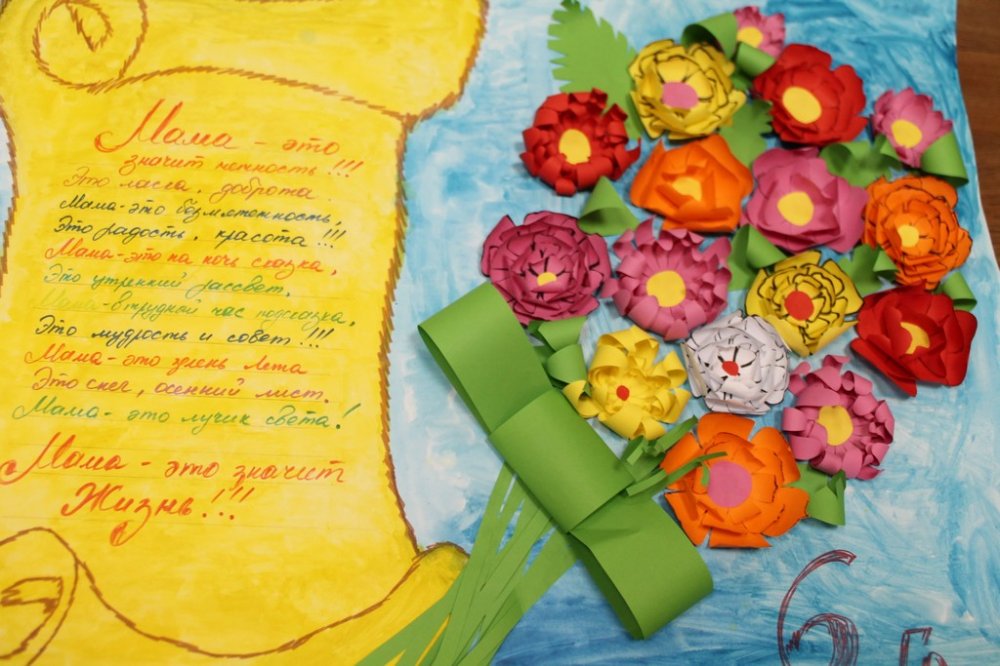 Мама - это
значит нежность!!!
Это ласка, доброта.
Мама-это безмятежность,
Это радость, красота!!!
Мама-это на ночь сказка,
Это утренний рассвет,
Мама-в трудной час подсказка,
Это мудрость и совет!!!
Мама-это зелень лета
Это снег, осенний лист.
Мама-это лучик света!
Мама - это значит
Жизнь!!!